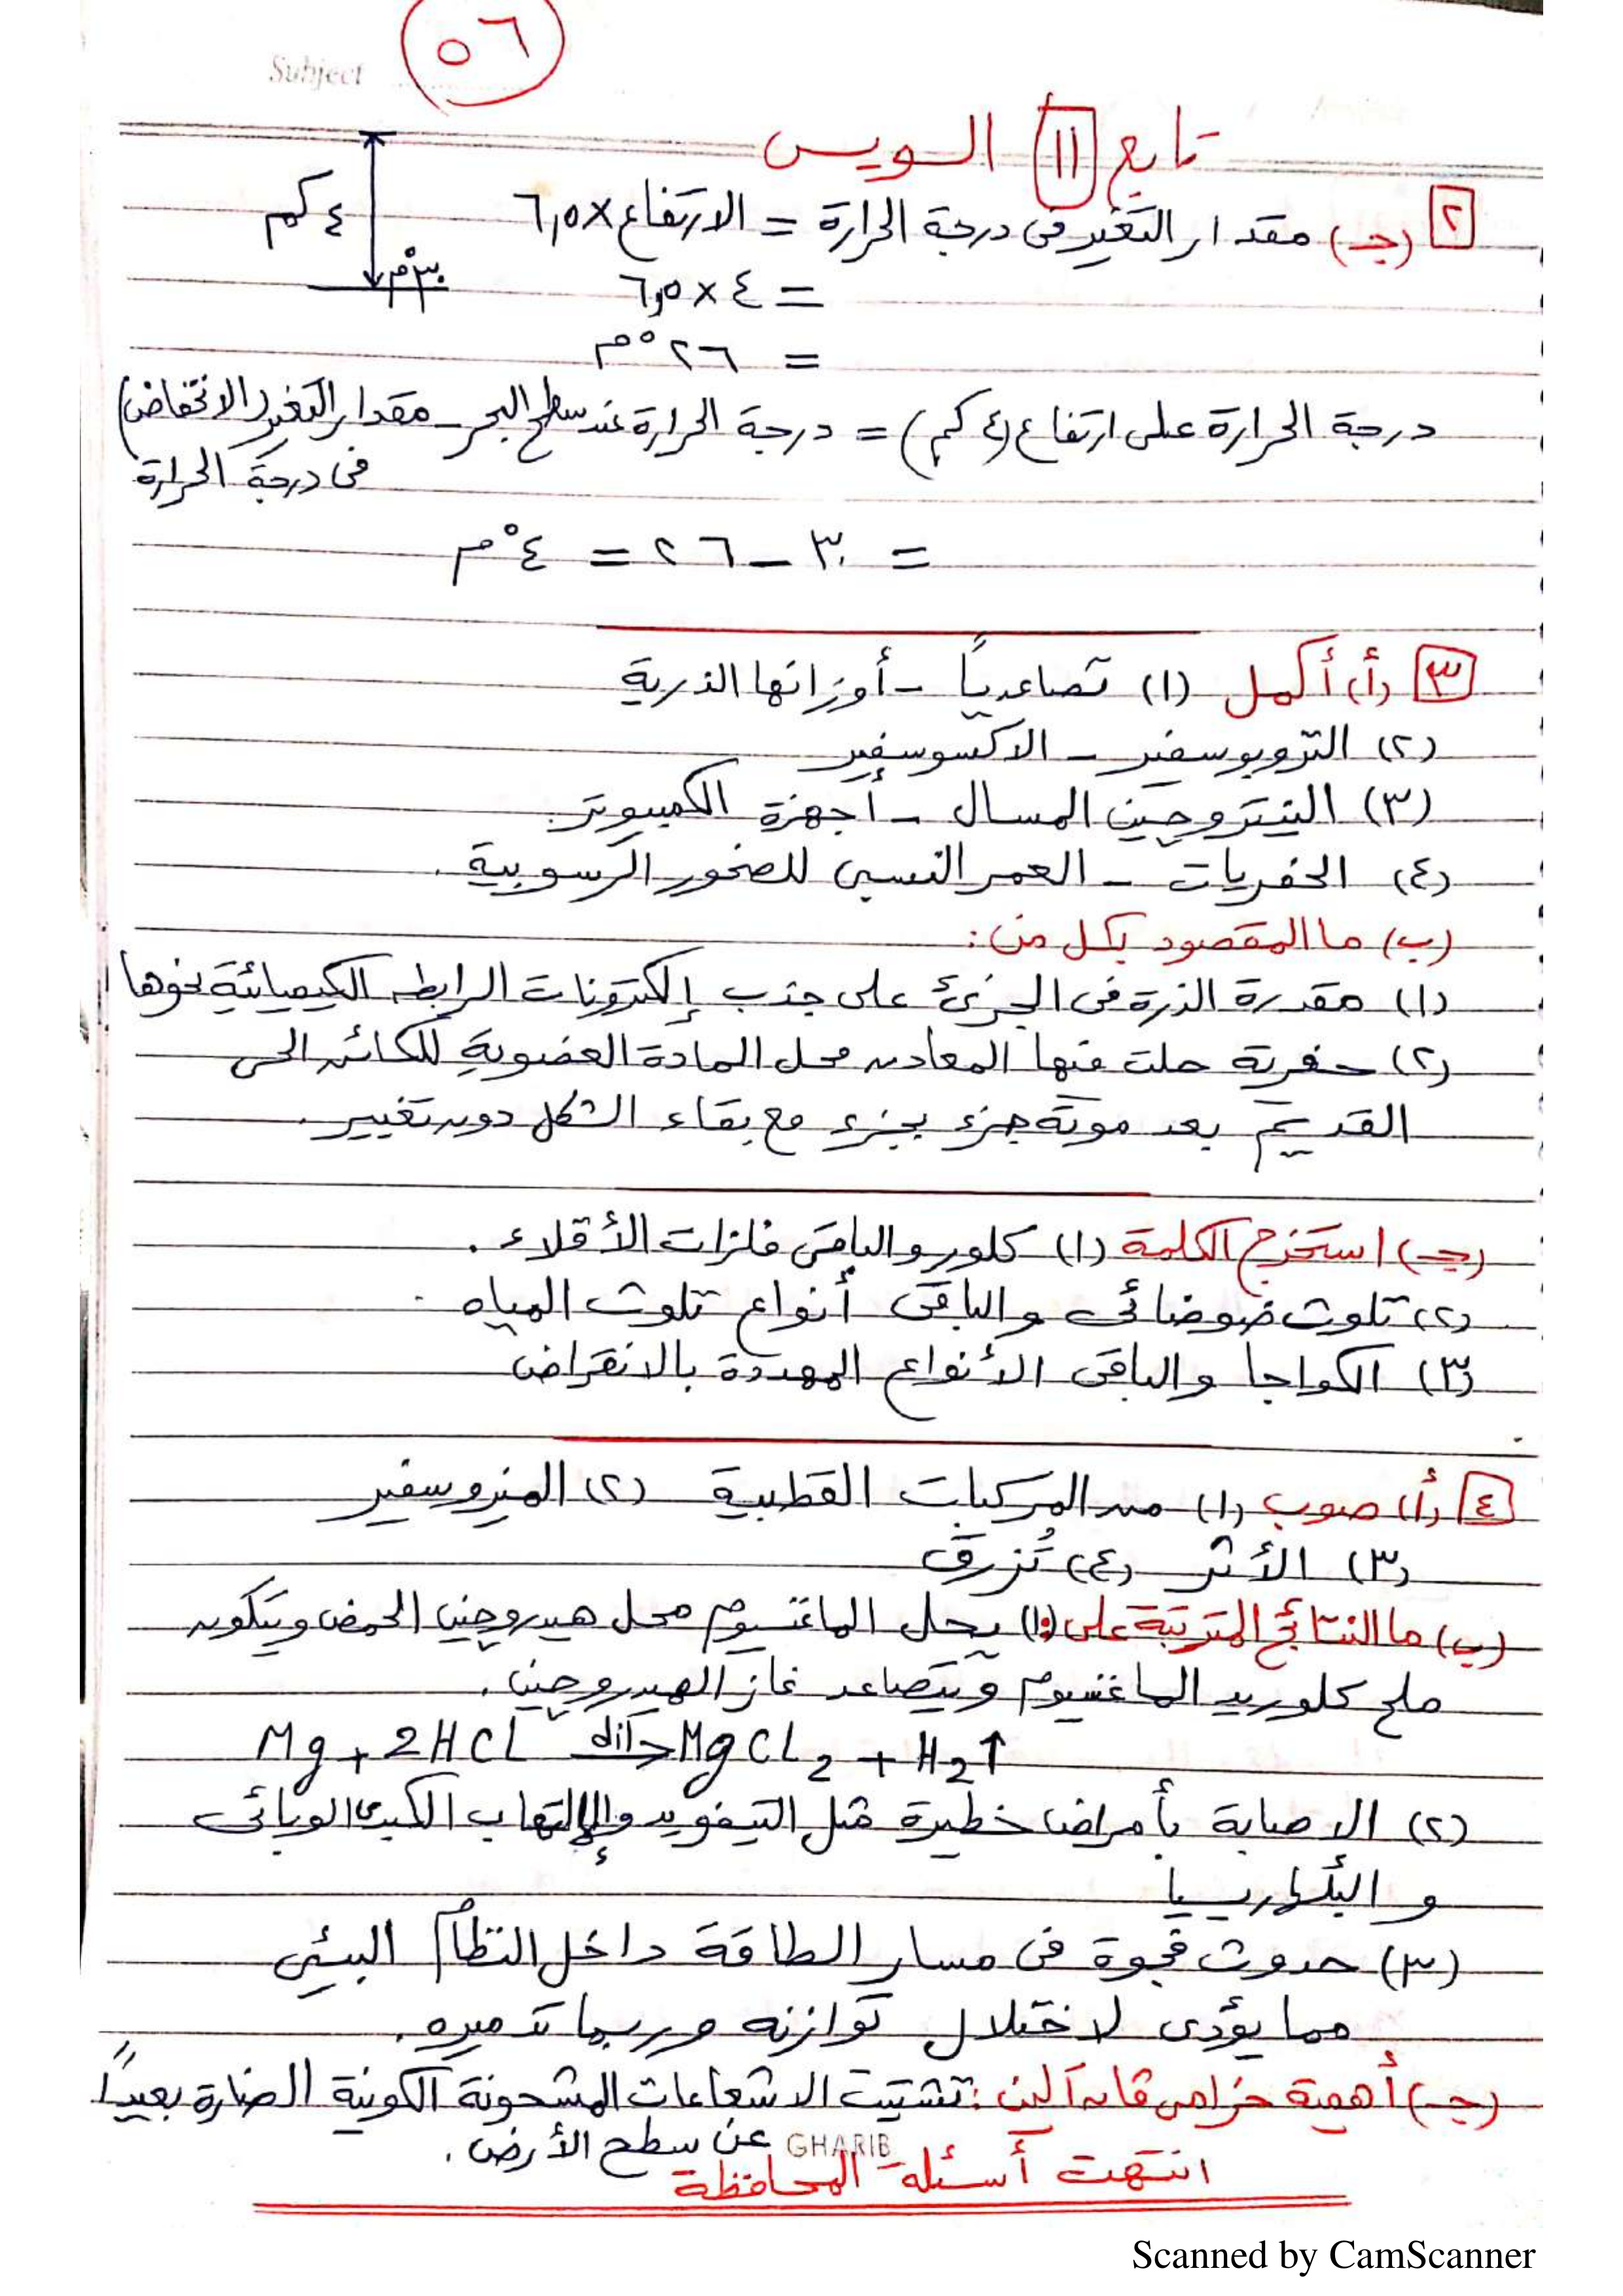 Subject
٥٦
تابع ١١ السويس
٢ (جـ) مقدار التغير فى درجة الحرارة = الارتفاع × ٦,٥
٤ كم
= ٤ × ٦,٥
٣٠°م
= ٢٦°م
درجة الحرارة على ارتفاع (٤ كم) = درجة الحرارة عند سطح البحر - مقدار التغير (الانخفاض)
فى درجة الحرارة
= ٣٠ - ٢٦ = ٤°م
٣ (أ) أكمل (١) تصاعدياً - أوزانها الذرية
(٢) التروبوسفير - الاكسوسفير
(٣) النيتروجين المسال - أجهزة الكمبيوتر.
(٤) الحفريات - العمر النسبى للصخور الرسوبية.
(ب) ما المقصود بكل من:
(١) مقدرة الذرة فى الجزئ على جذب إلكترونات الرابطة الكيميائية نحوها
(٢) حفرية حلت فيها المعادن محل المادة العضوية للكائن الحى
القديم بعد موته جزء بجزء مع بقاء الشكل دون تغيير.
(جـ) استخرج الكلمة (١) كلور والباقى فلزات الأقلاء.
(٢) تلوث ضوضائى والباقى أنواع تلوث المياه.
(٣) الكواجا والباقى الأنواع المهددة بالانقراض
٤ (أ) صوب (١) من المركبات القطبية (٢) الميزوسفير
(٣) الأثر (٤) تُزرق
(ب) ما النتائج المترتبة على: (١) يحل الماغنسيوم محل هيدروجين الحمض ويتكون
ملح كلوريد الماغنسيوم ويتصاعد غاز الهيدروجين.
Mg + 2HCl dil> MgCl2 + H2↑
(٢) الاصابة بأمراض خطيرة مثل التيفويد والإلتهاب الكبدى الوبائى
و البلهارسيا
(٣) حدوث فجوة فى مسار الطاقة داخل النظام البيئى
مما يؤدى لاختلال توازنه وربما تدميره.
(جـ) أهمية حزامى فان آلين: تشتيت الاشعاعات المشحونة الكونية الضارة بعيداً
عن سطح الأرض.
GHARIB
انتهت أسئلة المحافظة
Scanned by CamScanner